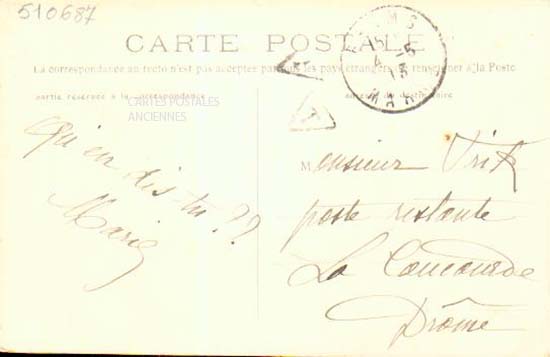 510687
CARTE POSTALE
La correspondance au recto n'est pas acceptée par tous les pays étrangers. Se renseigner à la Poste
partie réservée à la correspondance
CARTES POSTALES
ANCIENNES
Qu'en dis-tu ??
Marie
T
Monsieur
poste restante
La Concourde
Drôme